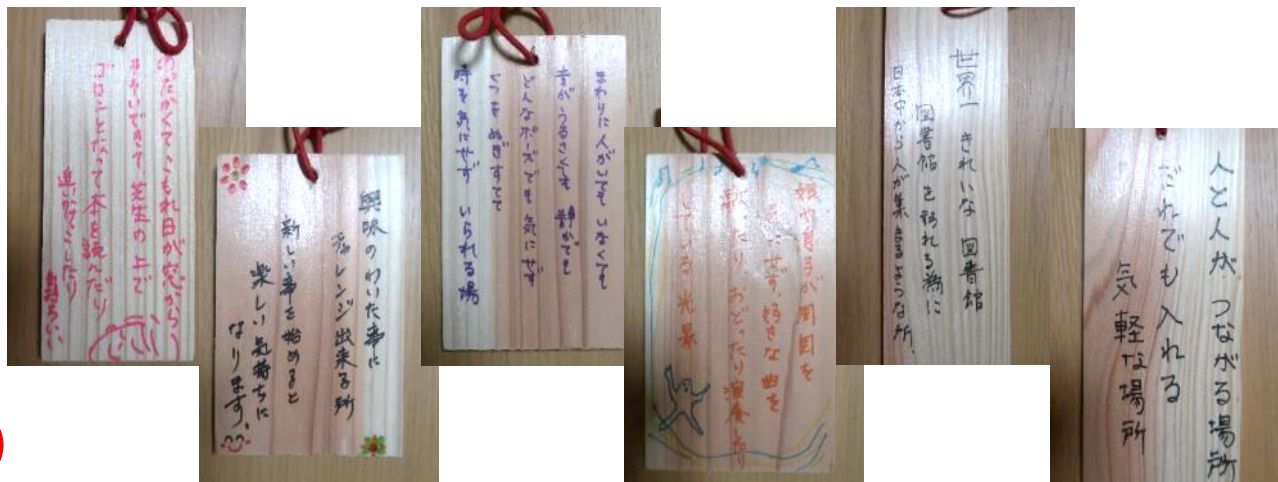 あったかくてこもれ日が窓から
そそいできて、芝生の上で
ゴロンとなって本を読んだり
興味のわいた事に
チャレンジ出来る所
新しい事を始めると
楽しい気持ちに
なります。
まわりに人がいても いなくても
音がうるさくても 静かでも
どんなポーズでも 気にせず
くつを ぬぎすてて
時を気にせず いられる場
娘や息子が周囲を
気にせず、好きな曲を
歌ったり おどったり 演奏したり
している光景
世界一 きれいな 図書館
図書館を訪れる為に
日本中から人が集まるような所、
人と人が つながる場所
だれでも入れる
気軽な場所